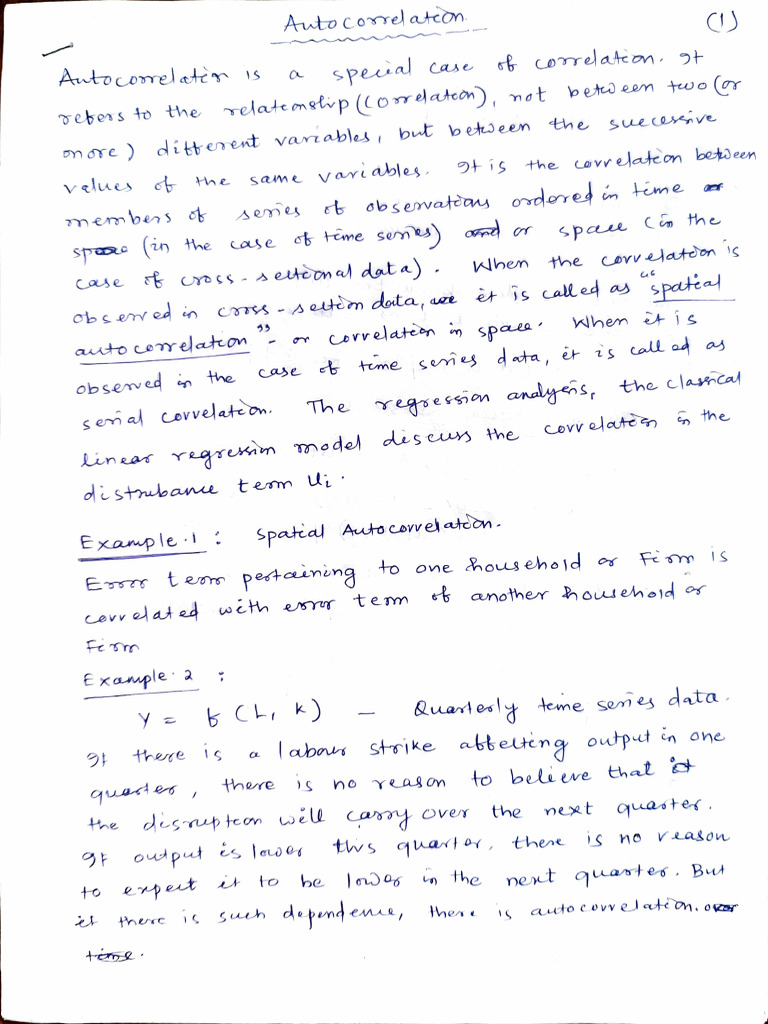 Autocorrelation
(1)
Autocorrelation is a special case of correlation. It
refers to the relationship (correlation), not between two (or
more) different variables, but between the successive
values of the same variables. It is the correlation between
members of series of observations ordered in time or
space (in the case of time series) and or space (in the
case of cross-sectional data). When the correlation is
observed in cross-section data, it is called as "spatial
autocorrelation" - or correlation in space. When it is
observed in the case of time series data, it is called as
serial correlation. The regression analysis, the classical
linear regression model discuss the correlation in the
distrubance term Ui.
Example.1 : Spatial Autocorrelation.
Error term pertaining to one household or Firm is
correlated with error term of another household or
Firm
Example.2 :
Y = f (L, K) - Quarterly time series data.
If there is a labour strike affecting output in one
quarter, there is no reason to believe that it
the disruption will carry over the next quarter.
If output is lower this quarter, there is no reason
to expect it to be lower in the next quarter. But
if there is such dependence, there is autocorrelation. over
time.